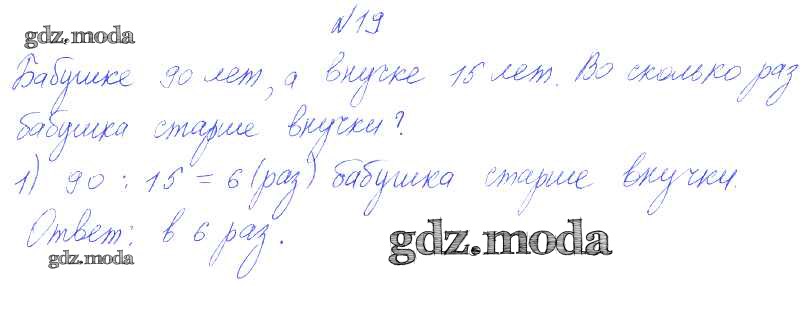 №19
gdz.moda
Бабушке 90 лет, а внучке 15 лет. Во сколько раз
бабушка старше внучки?
1) 90 : 15 = 6 (раз) бабушка старше внучки.
Ответ: в 6 раз.
gdz.moda
gdz.moda